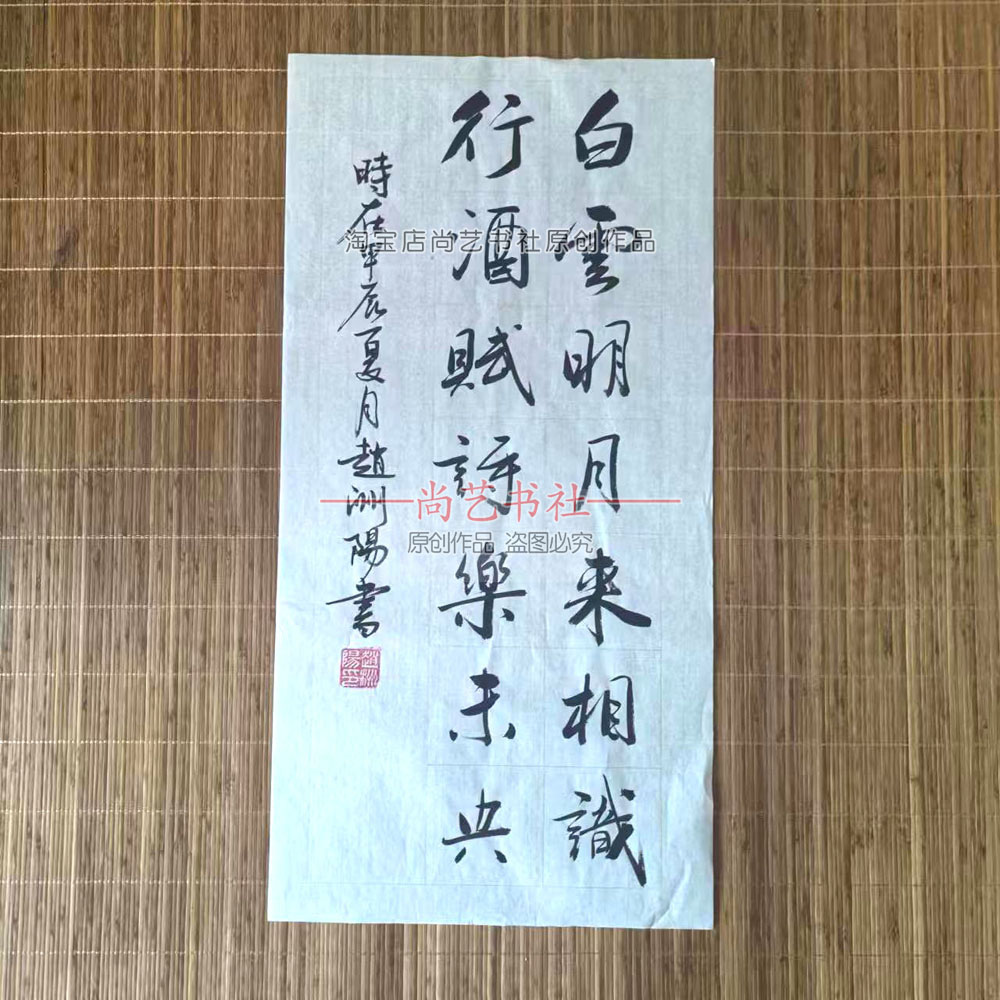 白雲明月来相識
行酒賦詩樂未央
時在甲辰夏月趙洲陽書
趙洲陽印
淘宝店尚艺书社原创作品
尚艺书社
原创作品 盗图必究